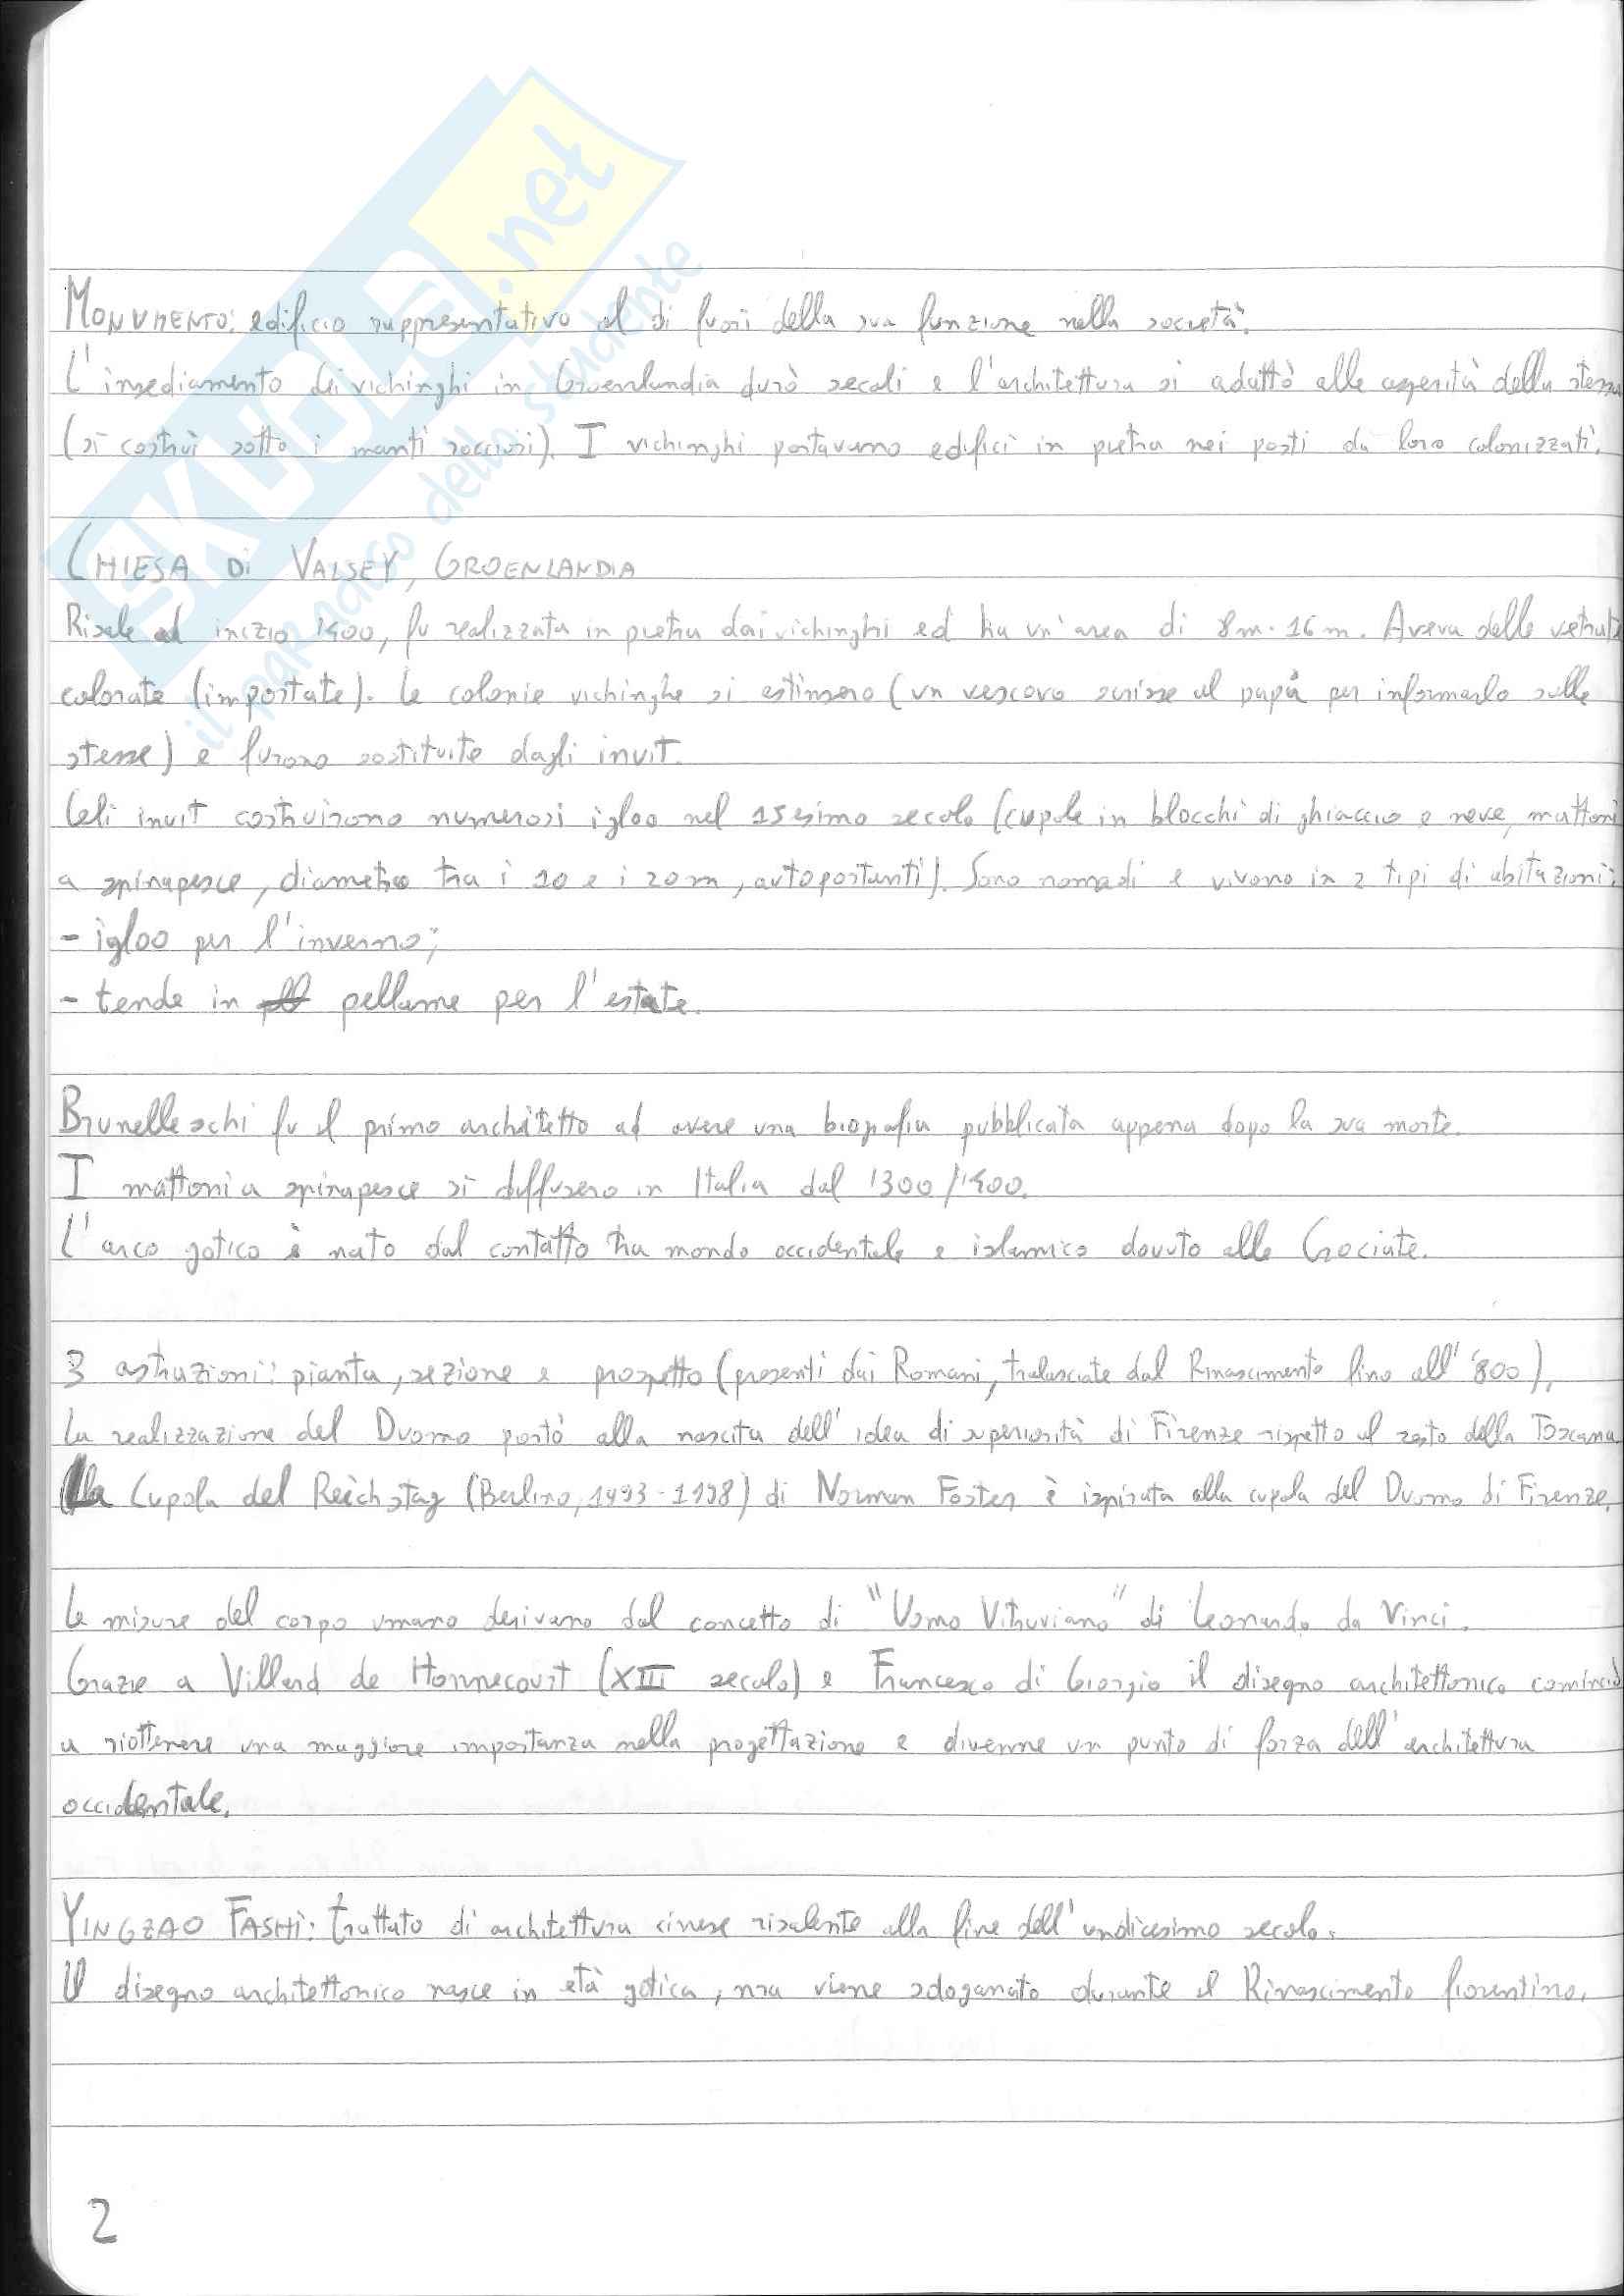 SKUOLA.net
il paradiso dello studente
MONUMENTO: edificio rappresentativo al di fuori della sua funzione nella società.
L'insediamento dei vichinghi in Groenlandia durò secoli e l'architettura si adattò alle asperità della stessa
(si costruì sotto i manti rocciosi). I vichinghi portavano edifici in pietra nei posti da loro colonizzati.
CHIESA DI VALSEY, GROENLANDIA
Risale ad inizio 1400, fu realizzata in pietra dai vichinghi ed ha un'area di 8m·16m. Aveva delle vetrate
colorate (importate). Le colonie vichinghe si estinsero (un vescovo scrisse al papa per informarlo sulle
stesse) e furono sostituite dagli inuit.
Gli inuit costruirono numerosi igloo nel 15esimo secolo (cupole in blocchi di ghiaccio e neve, mattoni
a spinapesce, diametro tra i 10 e i 20m, autoportanti). Sono nomadi e vivono in 2 tipi di abitazioni:
- igloo per l'inverno;
- tende in pellame per l'estate.
Brunelleschi fu il primo architetto ad avere una biografia pubblicata appena dopo la sua morte.
I mattoni a spinapesce si diffusero in Italia dal 1300/1400.
L'arco gotico è nato dal contatto tra mondo occidentale e islamico dovuto alle Crociate.
3 astrazioni: pianta, sezione e prospetto (presenti dai Romani, tralasciate dal Rinascimento fino all''800).
La realizzazione del Duomo portò alla nascita dell'idea di superiorità di Firenze rispetto al resto della Toscana.
La Cupola del Reichstag (Berlino, 1993-1998) di Norman Foster è ispirata alla cupola del Duomo di Firenze.
Le misure del corpo umano derivano dal concetto di "Uomo Vitruviano" di Leonardo da Vinci.
Grazie a Villard de Honnecourt (XIII secolo) e Francesco di Giorgio il disegno architettonico cominciò
a riottenere una maggiore importanza nella progettazione e divenne un punto di forza dell'architettura
occidentale.
YINGZAO FASHI: trattato di architettura cinese risalente alla fine dell'undicesimo secolo.
Il disegno architettonico nasce in età gotica, ma viene sdoganato durante il Rinascimento fiorentino.
2